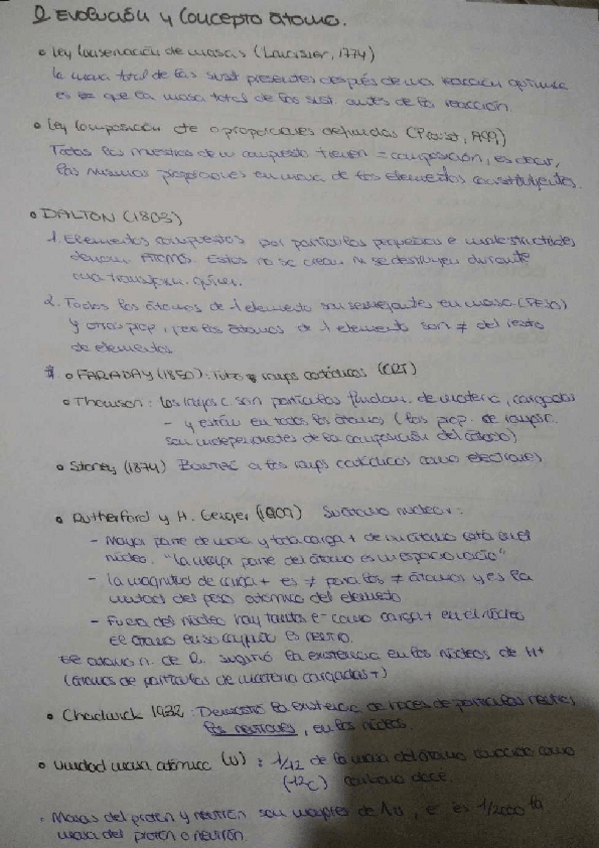 2. Evolución y Concepto átomo.
• Ley Conservación de masas (Lavoisier, 1774)
la masa total de las sust presentes después de una reacción química
es = que la masa total de las sust. antes de la reacción.
• Ley Composición cte o proporciones definidas (Proust, 1799)
Todas las muestras de un compuesto tienen = composición, es decir,
las mismas proporciones en masa de los elementos constituyentes.
• DALTON (1803)
1. Elementos compuestos por partículas pequeñas e indestructibles
denom. ÁTOMOS. Estos no se crean ni se destruyen durante
una transform. quím.
2. Todos los átomos de 1 elemento son semejantes en masa (PESO)
y otras prop, pero los átomos de 1 elemento son ≠ del resto
de elementos
• FARADAY (1850): Tubo rayos catódicos (CRT)
• Thomson: los rayos c. son partículas fundam. de materia, cargadas
- y están en todos los átomos (las prop. de
son independientes de la composición del cátodo)
• Stoney (1874) a los rayos catódicos como electrones
• Rutherford y H. Geiger (1909) Su átomo nuclear:
- Mayor parte de masa y toda carga + de un átomo está en el
núcleo. "la mayor parte del átomo es un espacio vacío"
- La magnitud de carga + es ≠ para los ≠ átomos y es la
mitad del peso atómico del elemento
- Fuera del núcleo hay tantos e- como carga + en el núcleo
El átomo en su conjunto es neutro.
El átomo n. de R. sugirió la existencia en los núcleos de H+
(átomos de partículas de materia cargadas +)
• Chadwick 1932: Demostró la existencia de de partículas neutras,
los neutrones, en los núcleos.
• Unidad masa atómica (u): 1/12 de la masa del átomo conocido como
(12C) carbono doce.
• Masas del protón y neutrón son mayores de 1u, e- es 1/2000 la
masa del protón o neutrón.